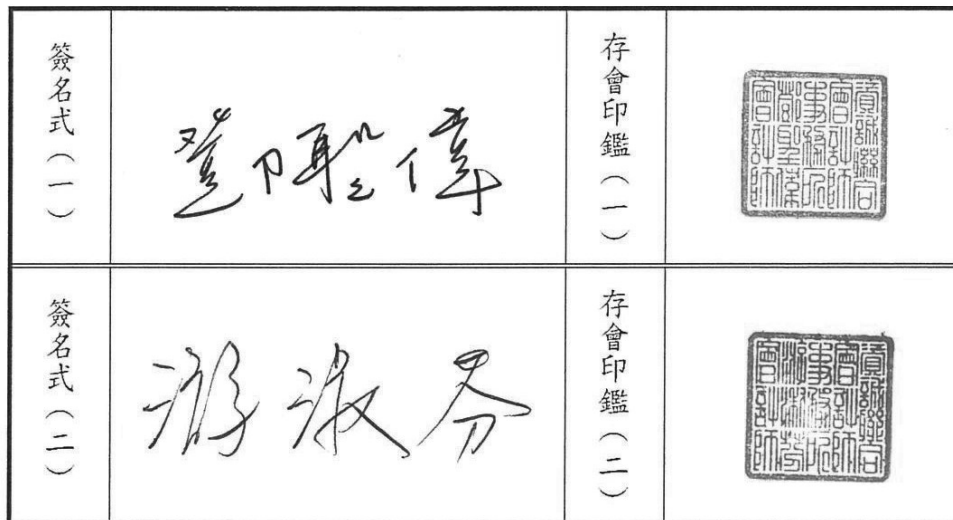 簽名式(一)
鄧聖偉
存會印鑑(一)
資誠聯合
會計師
事務所
鄧聖偉
會計師
簽名式(二)
游淑芬
存會印鑑(二)
資誠聯合
會計師
事務所
游淑芬
會計師